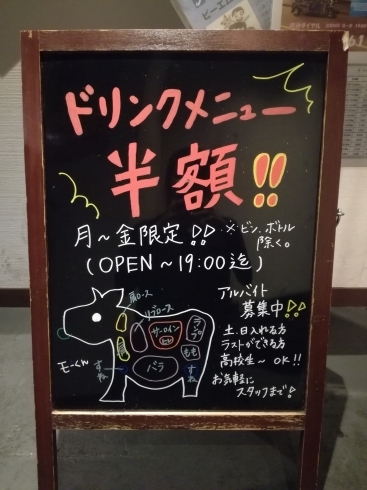 ドリンクメニュー
半額!!
月～金限定!! ※ビン、ボトル
除く。
(OPEN～19:00迄)
アルバイト
募集中!!
土、日入れる方
ラストができる方
高校生～OK!!
お気軽に
スタッフまで!
肩ロース
リブロース
サーロイン
ヒレ
ランプ
もも
バラ
すね
すね
モーくん